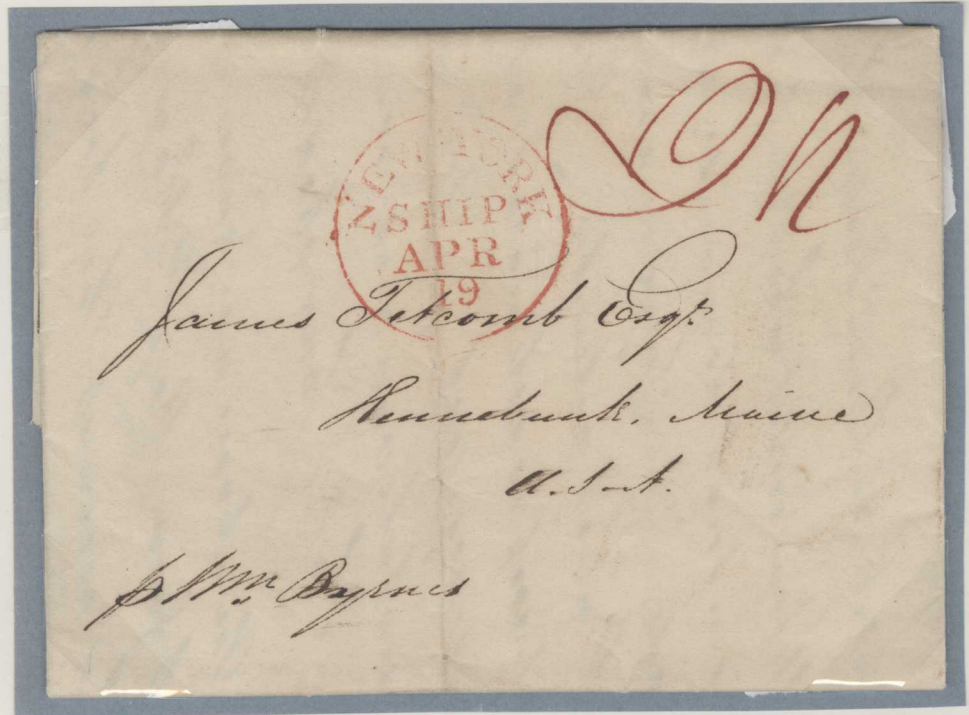 NEW YORK
SHIP
APR
19
James Titcomb Esqr.
Kennebunk, Maine
U.S.A.
p Wm. Byrnes